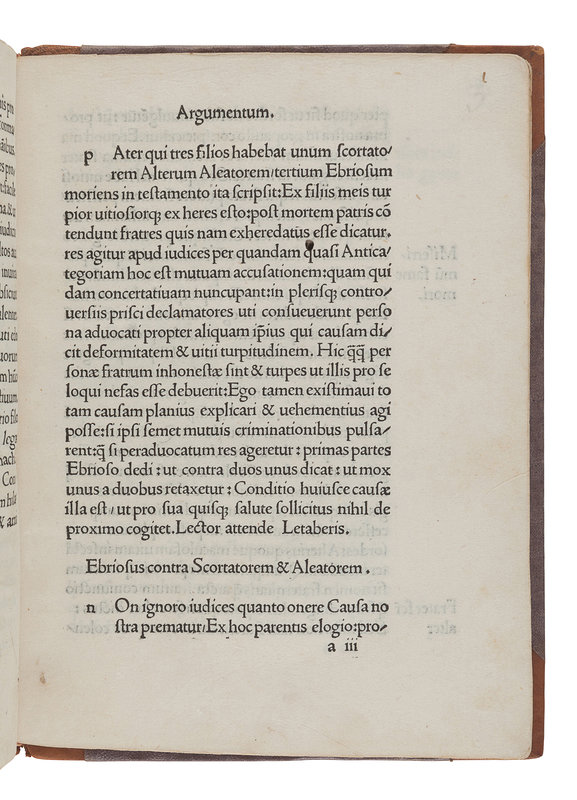 Argumentum.
p Ater qui tres filios habebat unum scortato/
rem Alterum Aleatorem/tertium Ebriosum
moriens in testamento ita scripsit:Ex filiis meis tur
pior uitiosiorq; ex heres esto:post mortem patris cō
tendunt fratres quis nam exheredatus esse dicatur.
res agitur apud iudices per quandam quasi Antica/
tegoriam hoc est mutuam accusationem:quam qui
dam concertatiuam nuncupant:in plerisq; contro/
uersiis prisci declamatores uti consueuerunt perso
na aduocati propter aliquam ip̄ius qui causam di/
cit deformitatem & uitii turpitudinem. Hic q̄q̄ per
sonæ fratrum inhonestæ sint & turpes ut illis pro se
loqui nefas esse debuerit:Ego tamen existimaui to
tam causam planius explicari & uehementius agi
posse:si ipsi semet mutuis criminationibus pulsa/
rent:q̄ si peraduocatum res ageretur:primas partes
Ebrioso dedi:ut contra duos unus dicat:ut mox
unus a duobus retaxetur:Conditio huiusce causæ
illa est/ut pro sua quisq; salute sollicitus nihil de
proximo cogitet.Lector attende Letaberis.
Ebriosus contra Scortatorem & Aleatorem.
n On ignoro iudices quanto onere Causa no
stra prematur/Ex hoc parentis elogio:pro/
a iii